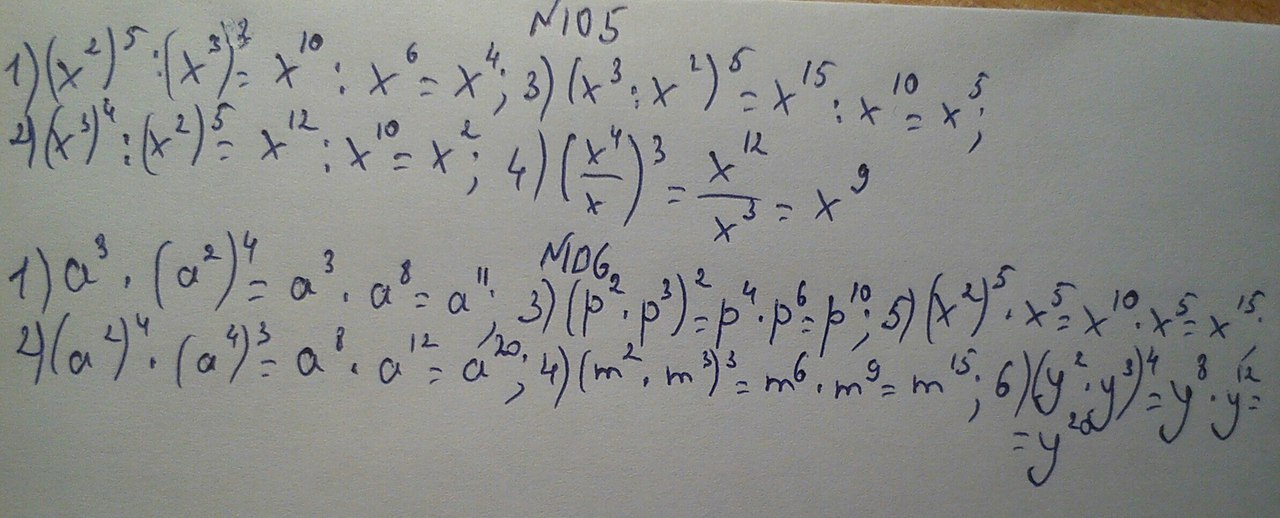 №105
1) (x²)⁵ : (x³)² = x¹⁰ : x⁶ = x⁴; 3) (x³ : x²)⁵ = x¹⁵ : x¹⁰ = x⁵;
2) (x³)⁴ : (x²)⁵ = x¹² : x¹⁰ = x²; 4) (x⁴/x)³ = x¹²/x³ = x⁹
№106
1) a³ · (a²)⁴ = a³ · a⁸ = a¹¹; 3) (p² · p³)² = p⁴ · p⁶ = p¹⁰; 5) (x²)⁵ · x⁵ = x¹⁰ · x⁵ = x¹⁵;
2) (a²)⁴ · (a⁴)³ = a⁸ · a¹² = a²⁰; 4) (m² · m³)³ = m⁶ · m⁹ = m¹⁵; 6) (y² · y³)⁴ = y⁸ · y¹² =
= y²⁰